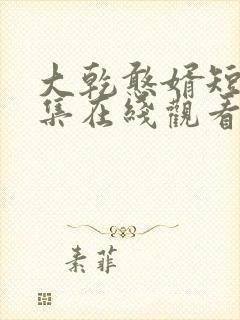 大乾憨婿短
集在綫觀看
素菲